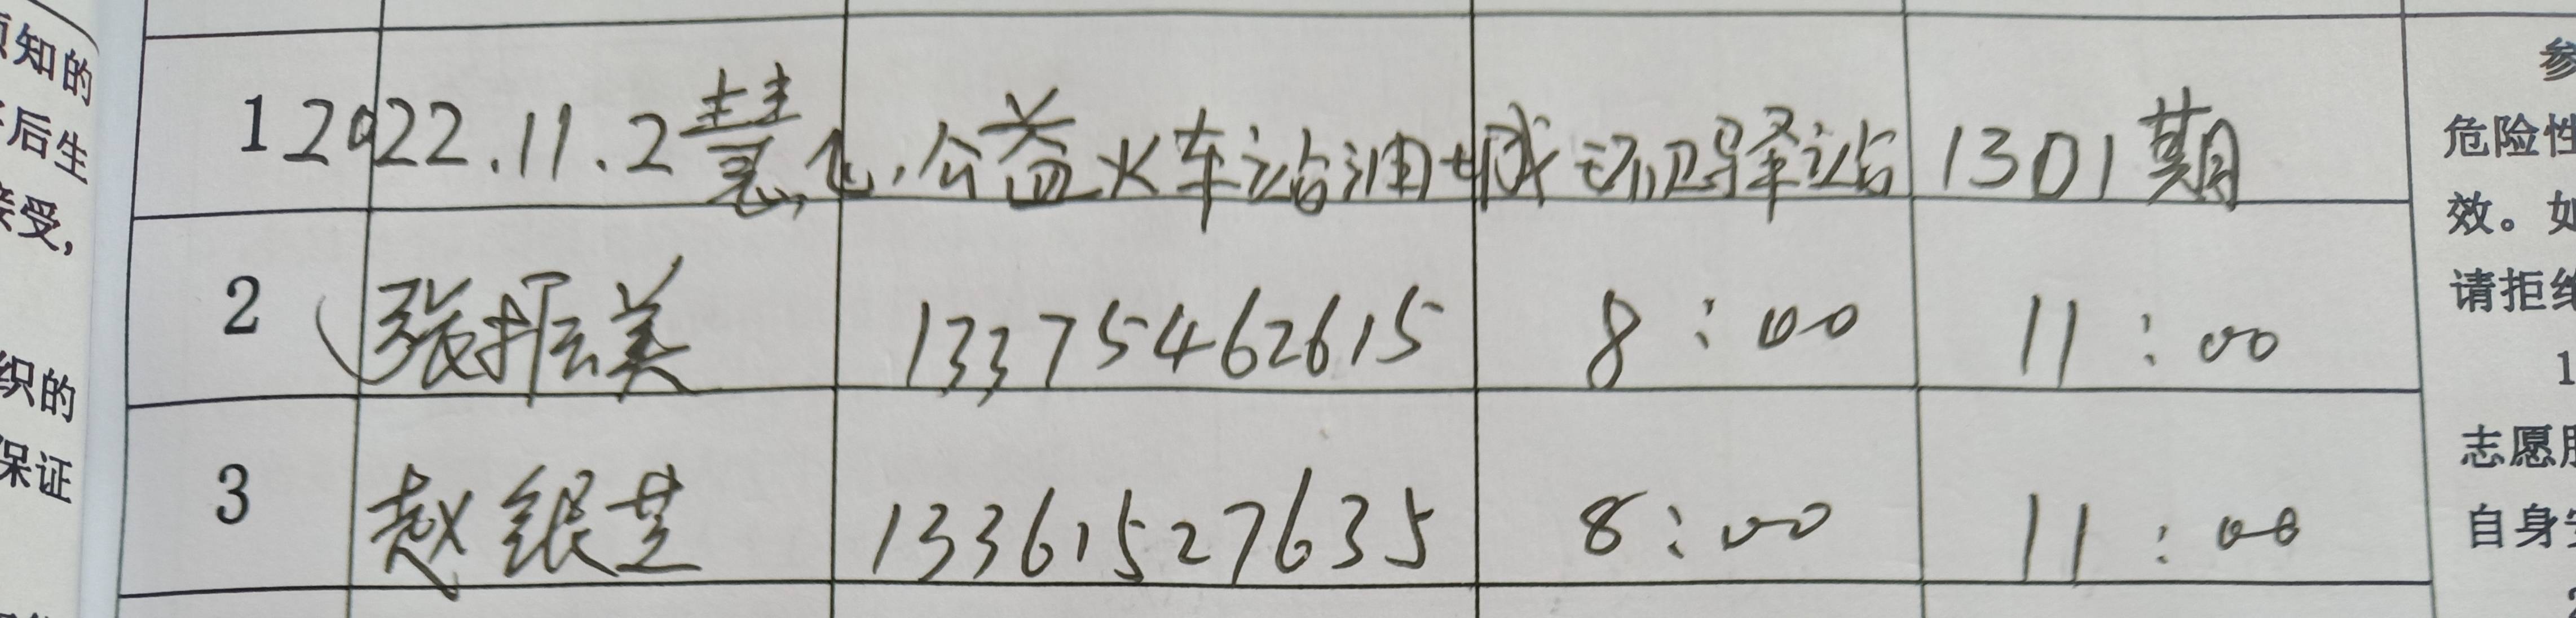 1 2022.11.2 慧心公益火车站油城环卫驿站 1301期
2 张振美 13375462615 8:00 11:00
3 赵银芝 13361527635 8:00 11:00
须知的
后生
接受,
织的
保证
参
危险性
效。如
请拒绝
1
志愿服
自身安